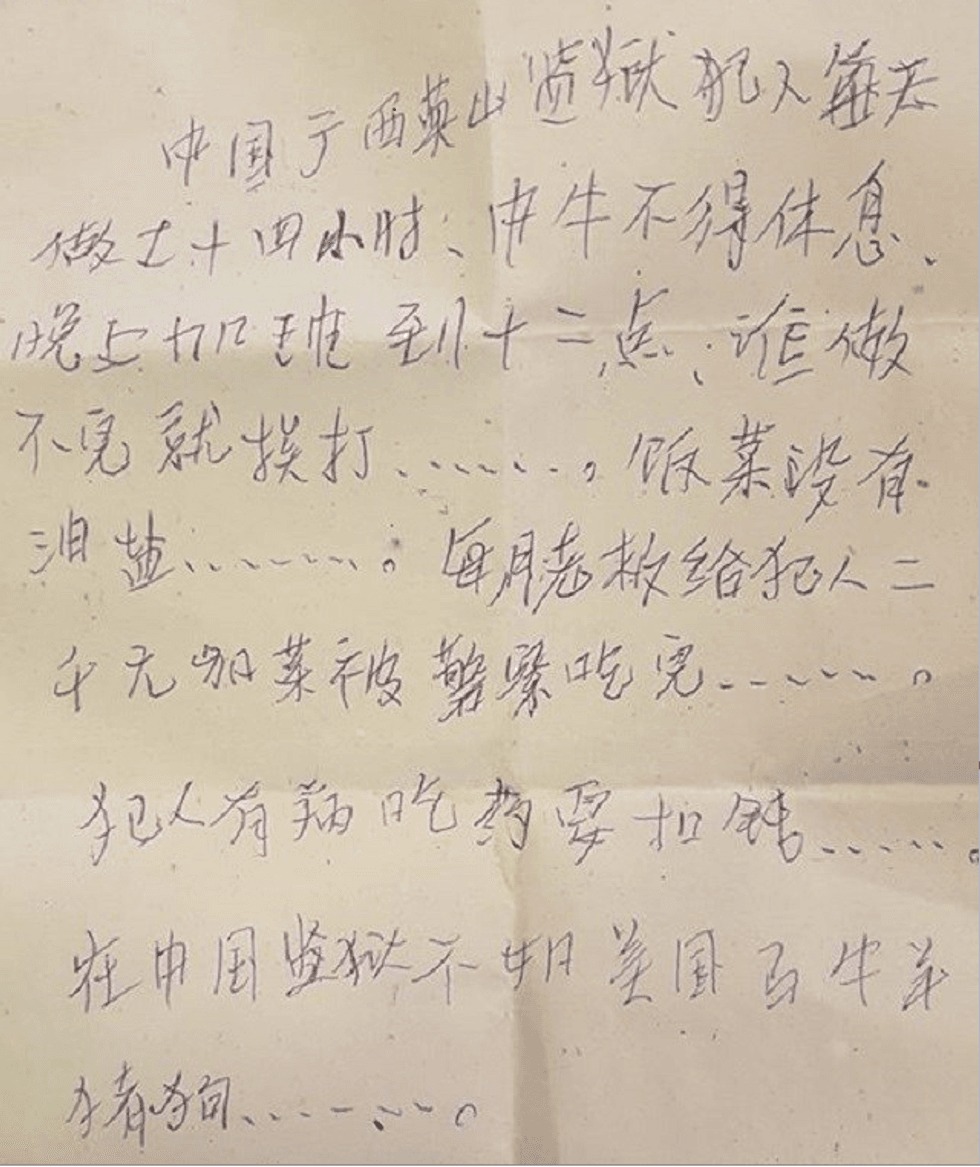 中国广西英山监狱犯人每天
做工十四小时、中午不得休息、
晚上加班到十二点、谁做
不完就挨打、……。饭菜没有
油盐、……。每月老板给犯人二
千元加菜被警察吃完……。
犯人有病吃药要扣钱……。
在中国监狱不如美国马牛羊
猪狗、……。